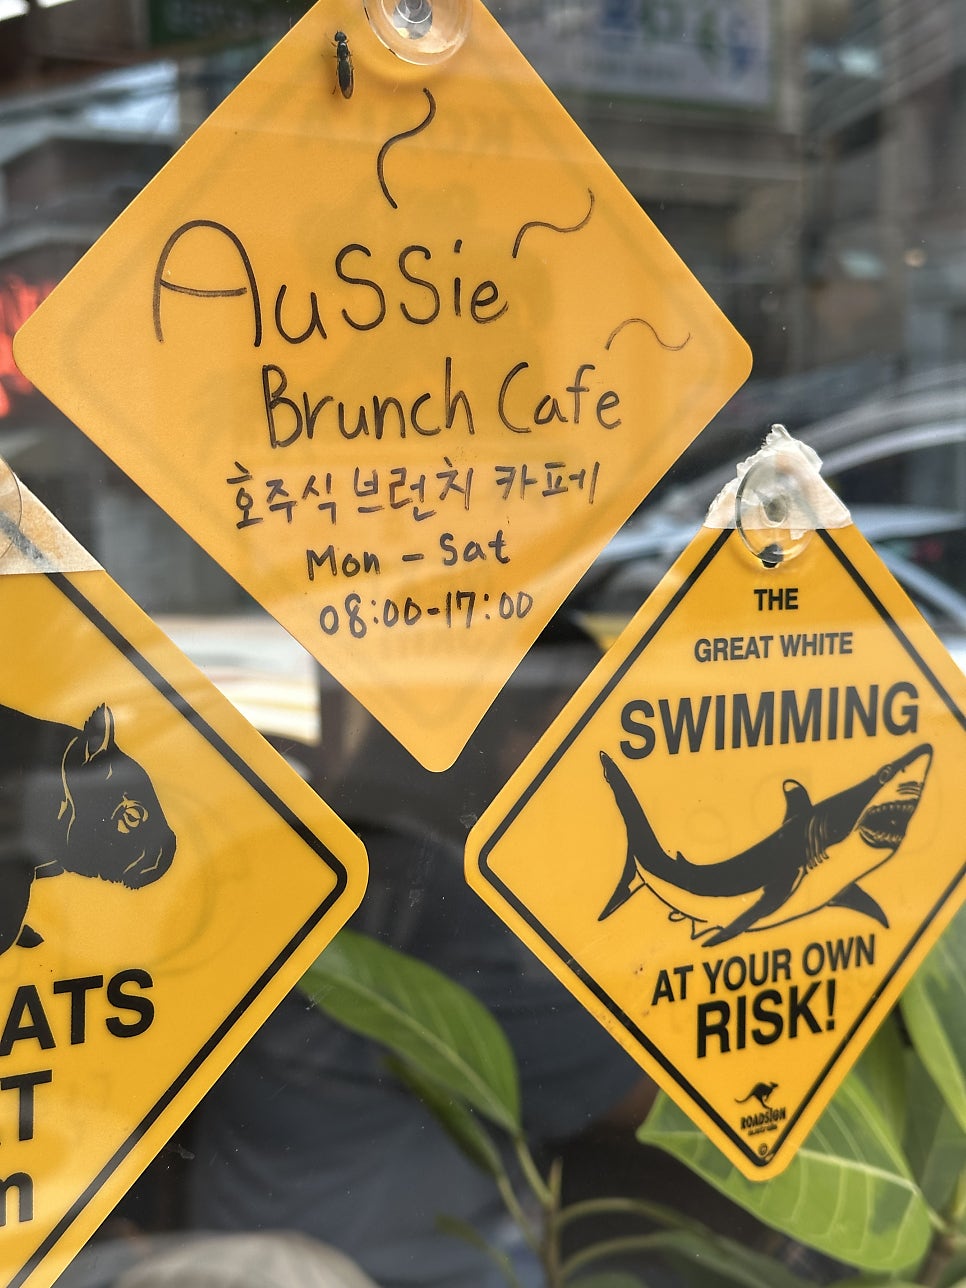 Aussie
Brunch Cafe
호주식 브런치 카페
Mon - Sat
08:00-17:00
THE
GREAT WHITE
SWIMMING
AT YOUR OWN
RISK!
ROADSIGN
australia
©
ATS
T
m